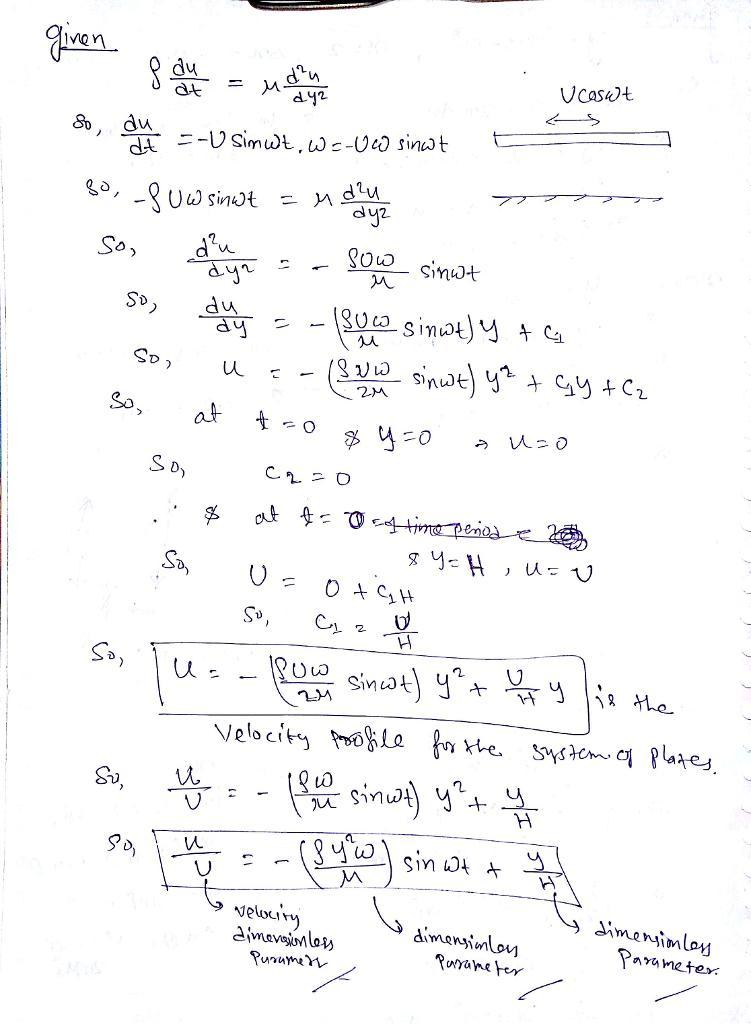 given
ρ du/dt = μ d²u/dy²
U cos ωt
so, du/dt = -U sin ωt . ω = -Uω sin ωt
so, -ρUω sin ωt = μ d²u/dy²
So, d²u/dy² = - ρUω/μ sin ωt
so, du/dy = - (ρUω/μ sin ωt) y + C₁
so, u = - (ρUω/2μ sin ωt) y² + C₁y + C₂
So, at t = 0 & y = 0 → u = 0
So, C₂ = 0
∴ & at t = 0 = 1 time period =
& y = H , u = U
So, U = 0 + C₁H
So, C₁ = U/H
So, u = - (ρUω/2μ sin ωt) y² + U/H y is the
velocity profile for the system of plates.
So, u/U = - (ρω/2μ sin ωt) y² + y/H
So, u/U = - (ρy²ω/μ) sin ωt + y/H
velocity dimensionless Parameter
dimensionless Parameter
dimensionless Parameter.